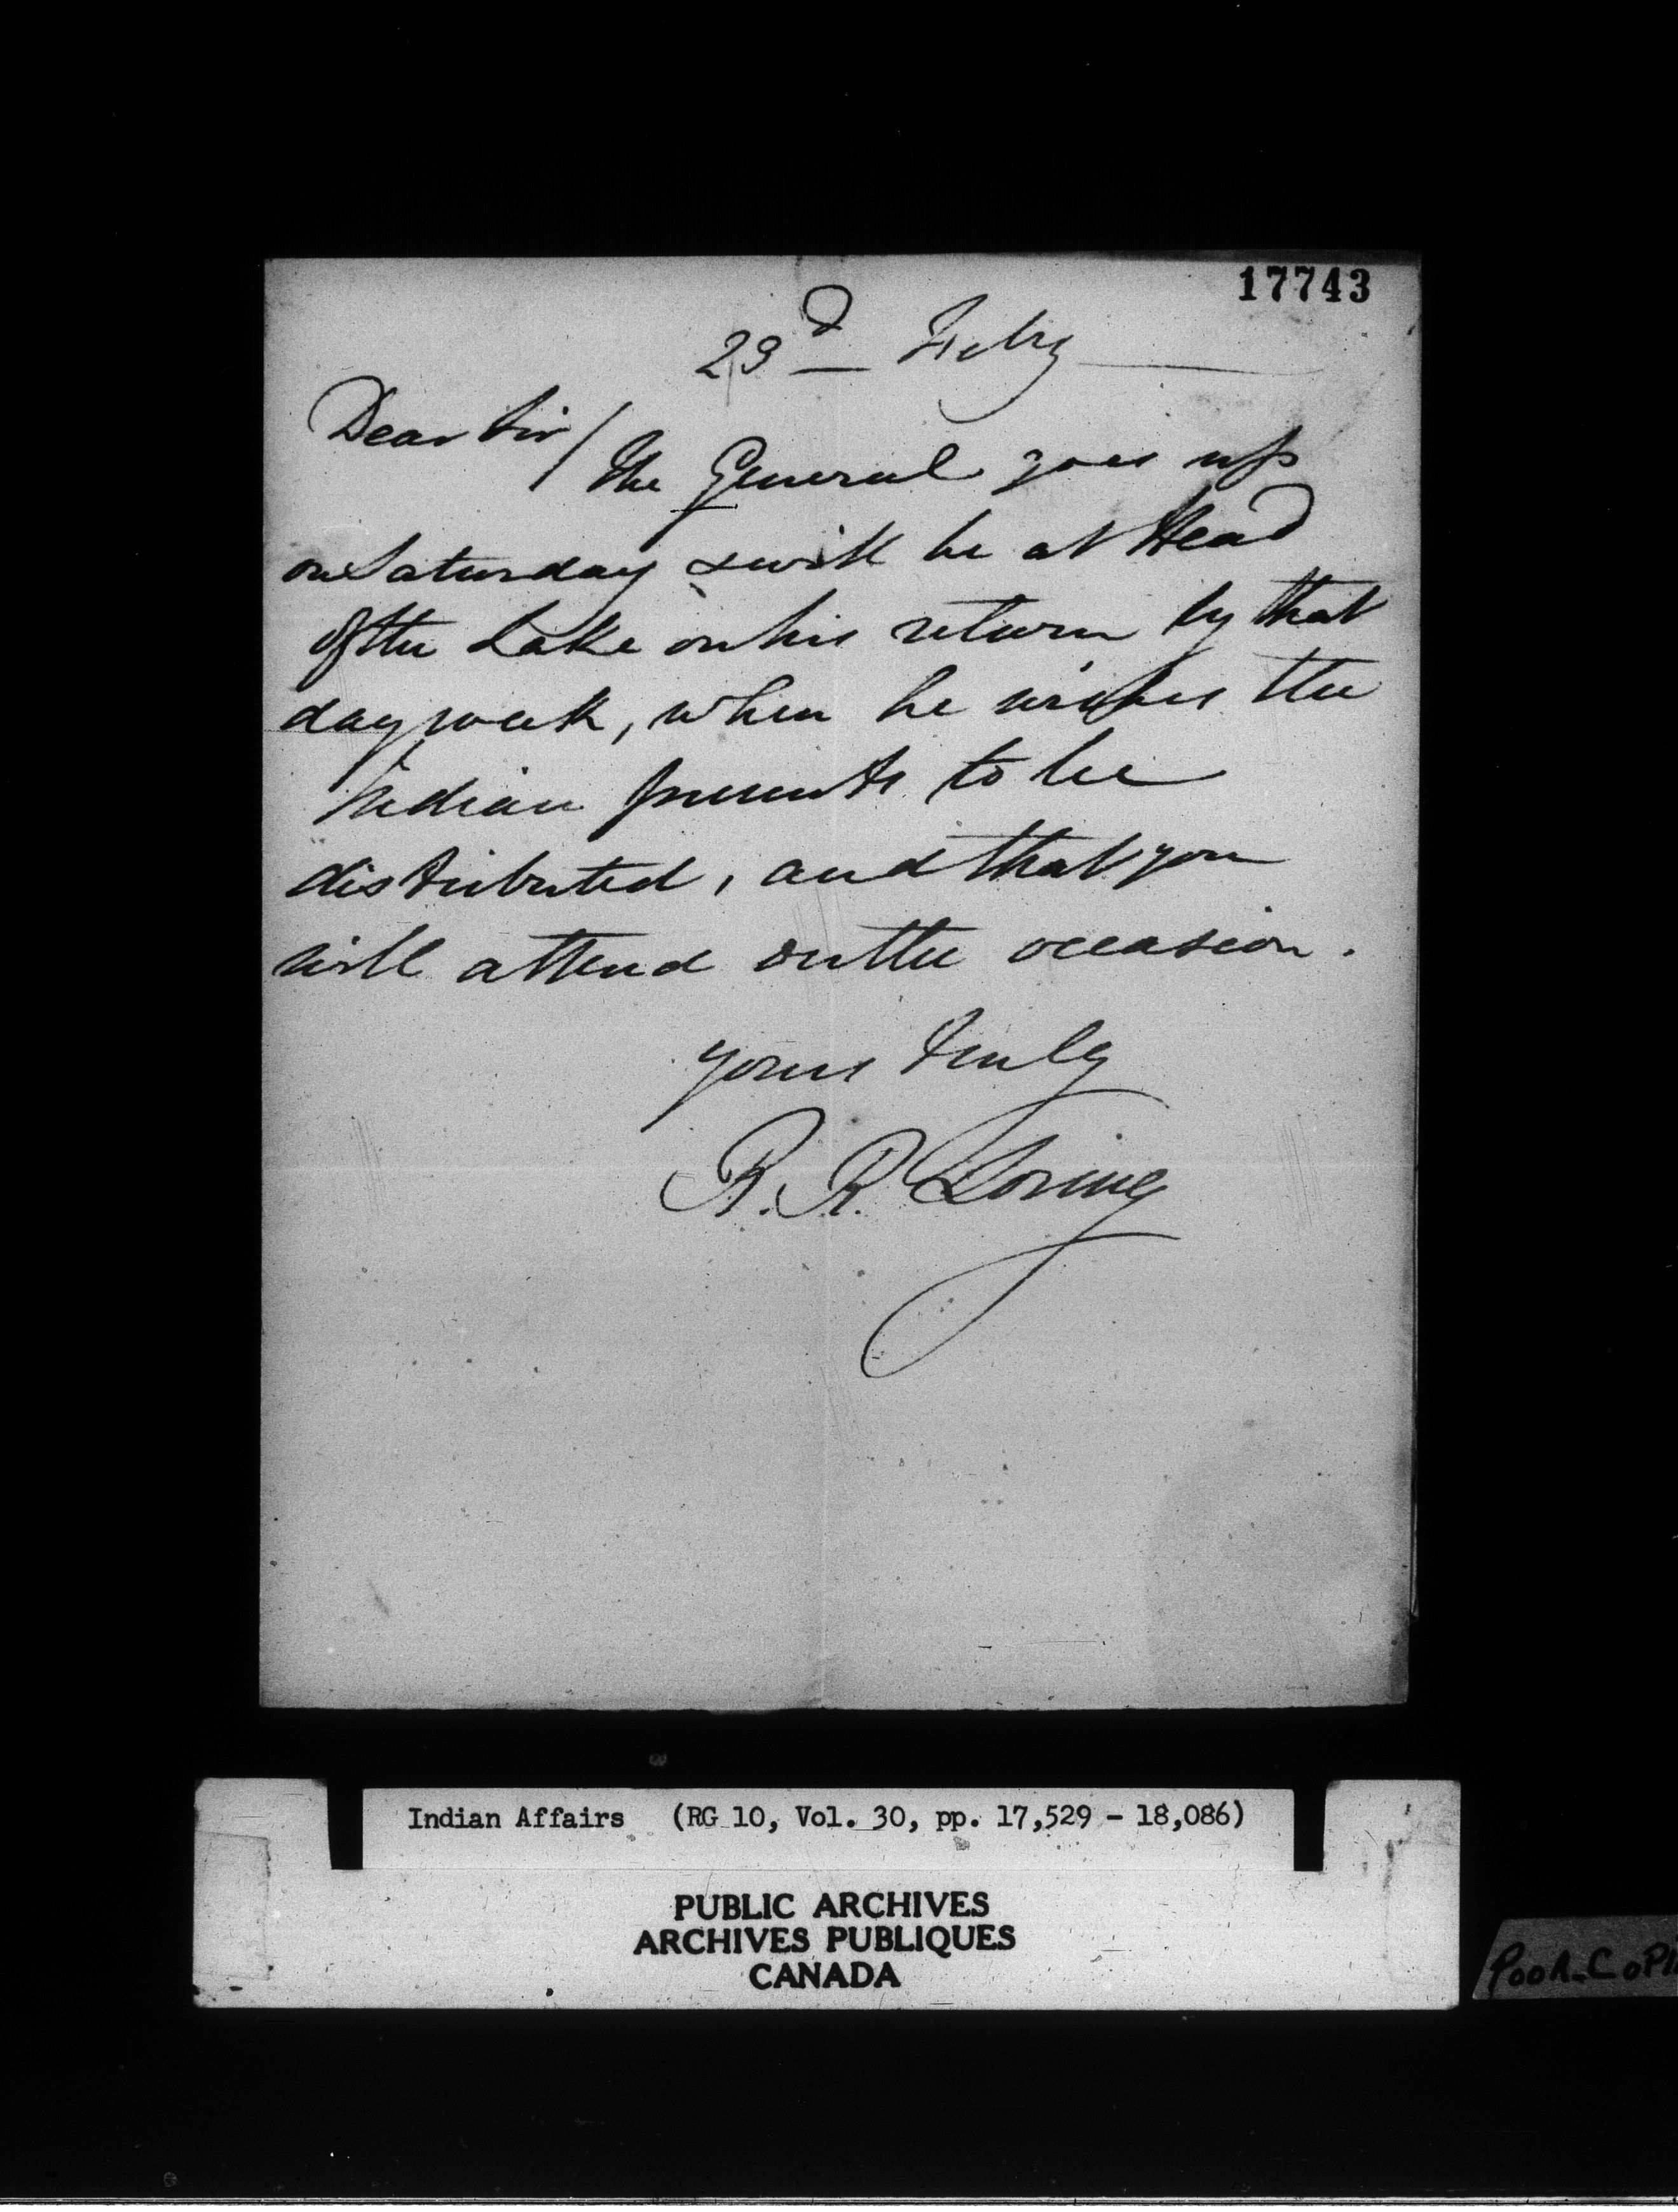 17743
23d Feby
Dear Sir/
The General goes up
on Saturday & will be at Head
of the Lake on his return by that
day week, when he wishes the
Indian presents to be
distributed, and that you
will attend on the occasion.
yours truly
R. R. Loring
Indian Affairs (RG 10, Vol. 30, pp. 17,529 - 18,086)
PUBLIC ARCHIVES
ARCHIVES PUBLIQUES
CANADA
POOR COPI